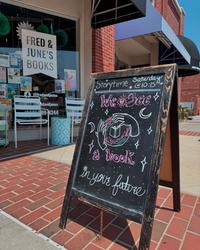 FRED &
JUNE'S
BOOKS
Storytime Saturday
@10:15
We See
a book
in your future